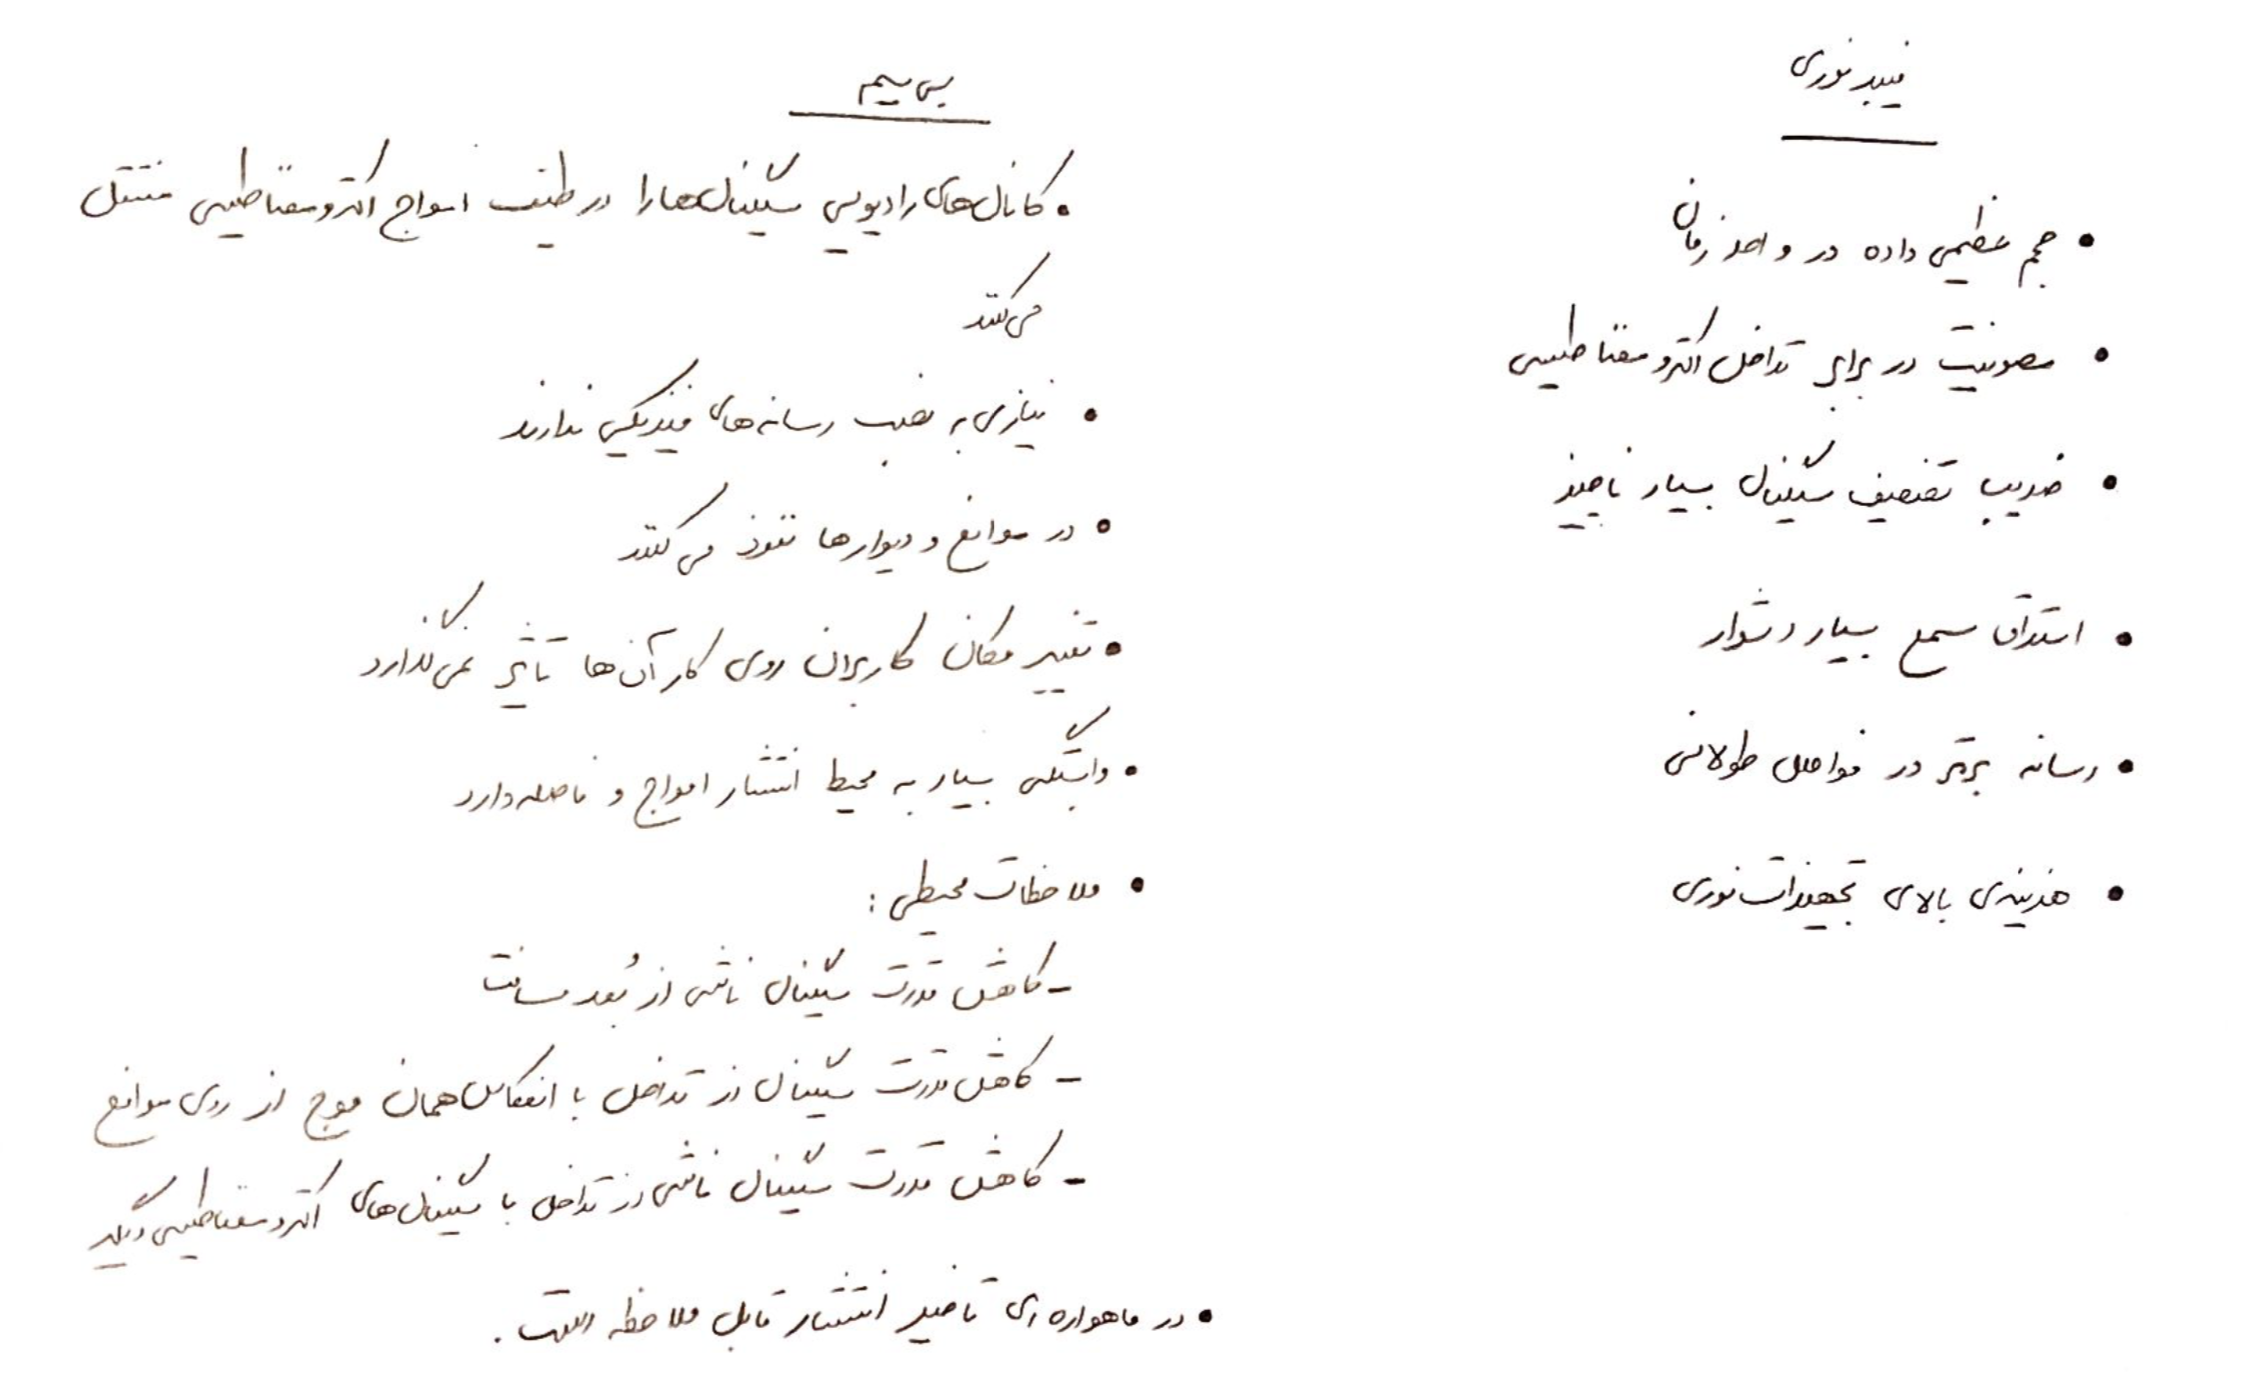 فیبر نوری
• حجم عظیمی داده در واحد زمان
• مصونیت در برابر تداخل الکترومغناطیسی
• ضریب تضعیف سیگنال بسیار ناچیز
• استراق سمع بسیار دشوار
• رسانه برتر در فواصل طولانی
• هزینه‌ی بالای تجهیزات نوری
بی‌سیم
• کانال‌های رادیویی سیگنال‌ها را در طیف امواج الکترومغناطیسی منتقل
می‌کنند
• نیازی به نصب رسانه‌های فیزیکی ندارند
• در موانع و دیوارها نفوذ می‌کنند
• تغییر مکان کاربران روی کار آن‌ها تاثیر نمی‌گذارد
• وابستگی بسیار به محیط انتشار امواج و فاصله دارد
• ملاحظات محیطی :
- کاهش قدرت سیگنال ناشی از بُعد مسافت
- کاهش قدرت سیگنال از تداخل با انعکاس همان موج از روی موانع
- کاهش قدرت سیگنال ناشی از تداخل با سیگنال‌های الکترومغناطیسی دیگر
• در ماهواره‌ای تاخیر انتشار قابل ملاحظه است .